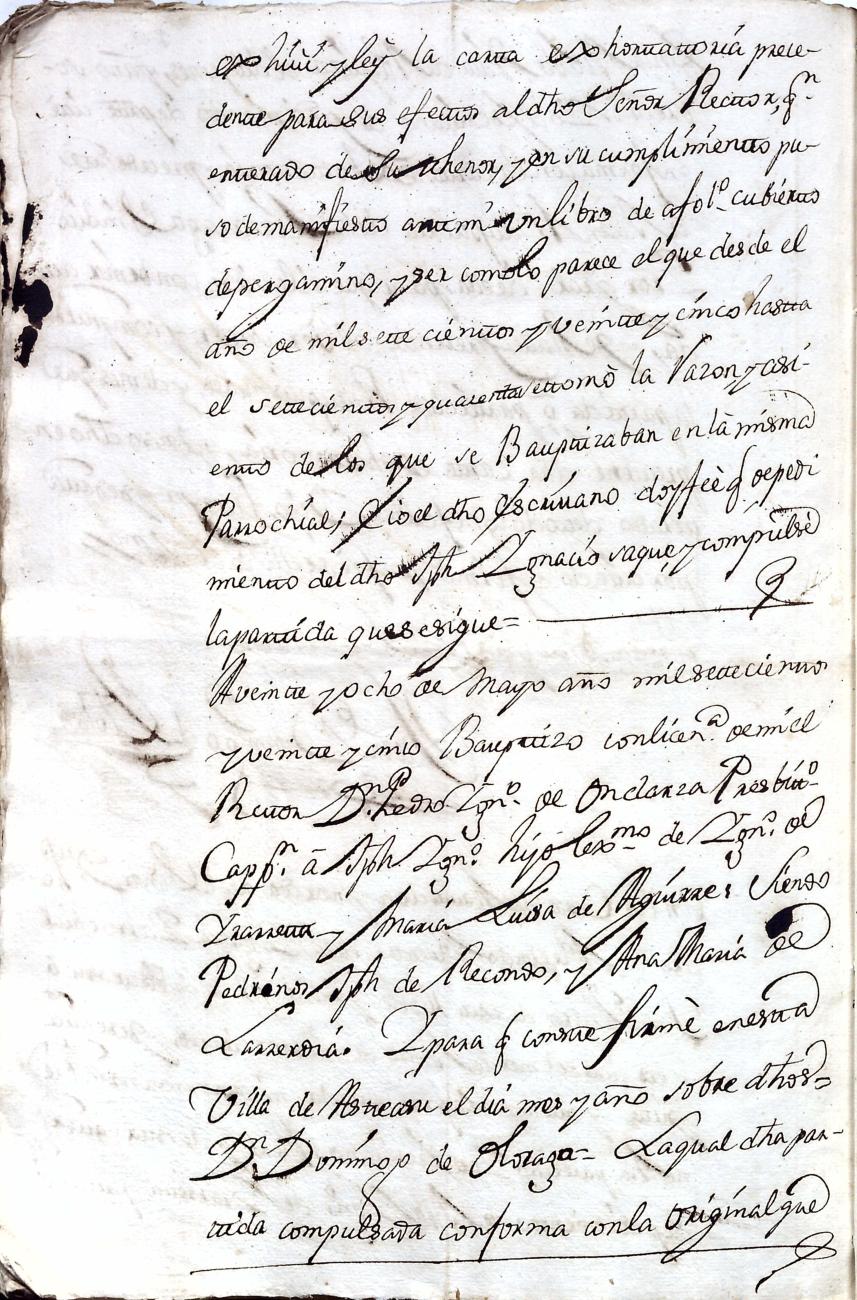 exhiui y ley la carta exhortattoria prece-
dente para sus efectos al dho Señor Rector, qn
entterado de su thenor, y en su cumplimientto pu-
so de manifiesto antte mi un libro de a folº cubierto
de pergamino, y ser como lo parece el que desde el
año de mil sette cienttos y veintte y cinco hasta
el settecientos y quarenta se ttomò la razon y asi-
entto de los que se Bauptizaban en la misma
Parrochial; E io el dho Escriuano doy feè q de pedi
mientto del dho Jph Ygnacio saquè, y compulsè
la parttida que se sigue=
A veintte y ocho de Mayo año mil settecienttos
y veintte y cinco Bauptizo con licenª de mi el
Rettor Dn Pedro Ygnº de Ondarza Presbittº
Cappn a Jph Ygnº hijo lexmo de Ygnº de
Yrarreta y Maria Luisa de Aguirre: Siendo
Padrinos Jph de Recondo, y Ana Maria de
Larrerdia. Y para q constte firmè en estta
Villa de Astteasu el dia mes y año sobre dhos=
Dn Domingo de Olozaga= La qual dha par-
ttida compulsada conforma con la original que